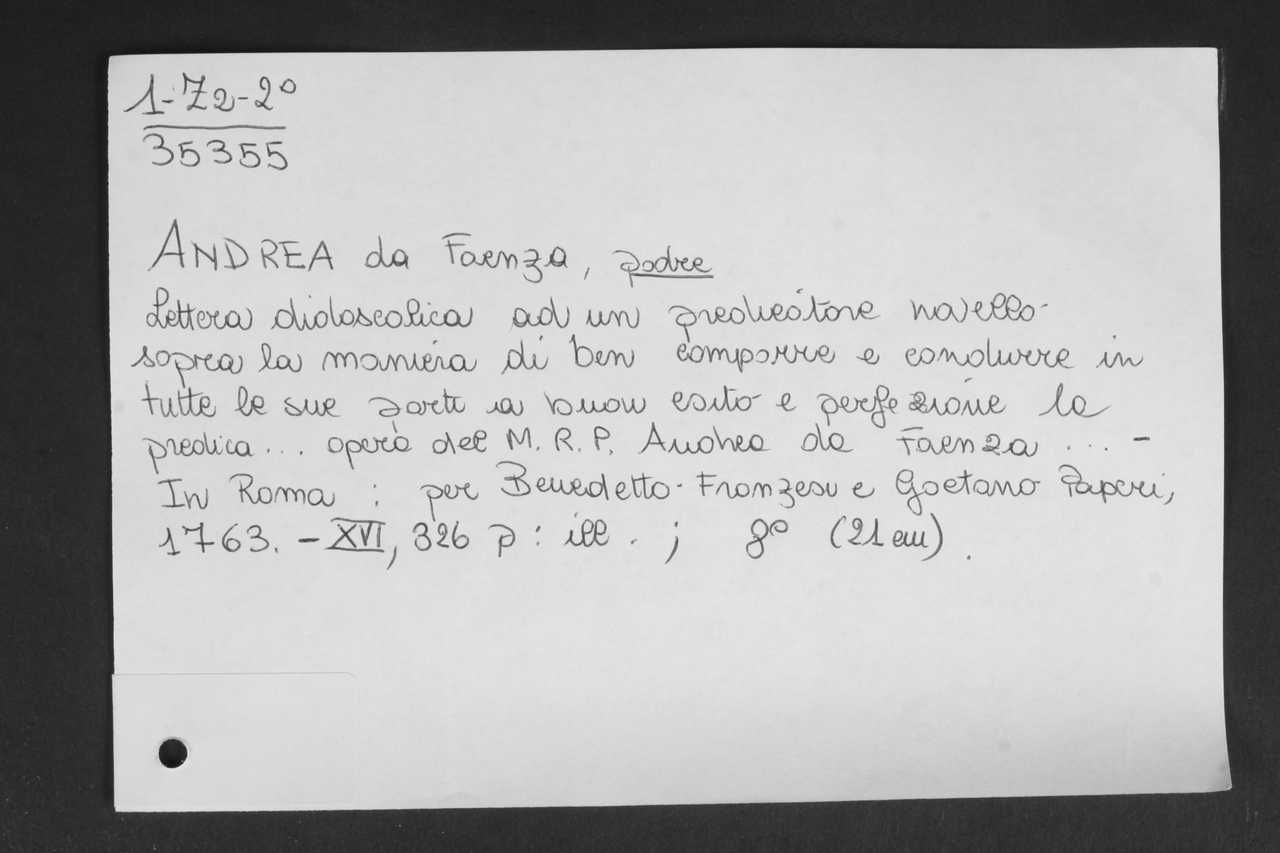 1-Z2-2°
35355
ANDREA da Faenza, padre
Lettera didascalica ad un predicatore novello
sopra la maniera di ben comporre e condurre in
tutte le sue parti a buon esito e perfezione la
predica... opera del M. R. P. Andrea da Faenza ... -
In Roma : per Benedetto Franzesi e Gaetano Paperi,
1763. - XVI, 326 p : ill . ; 8° (21 cm) .